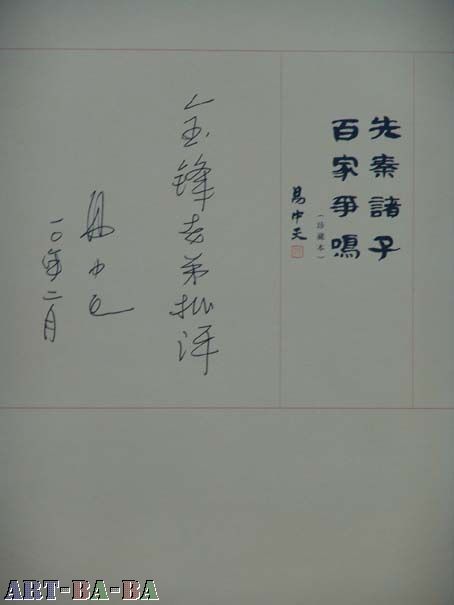 先秦諸子
百家爭鳴
（珍藏本）
易中天
金锋老弟批评
易中天
一〇年二月
ART-BA-BA